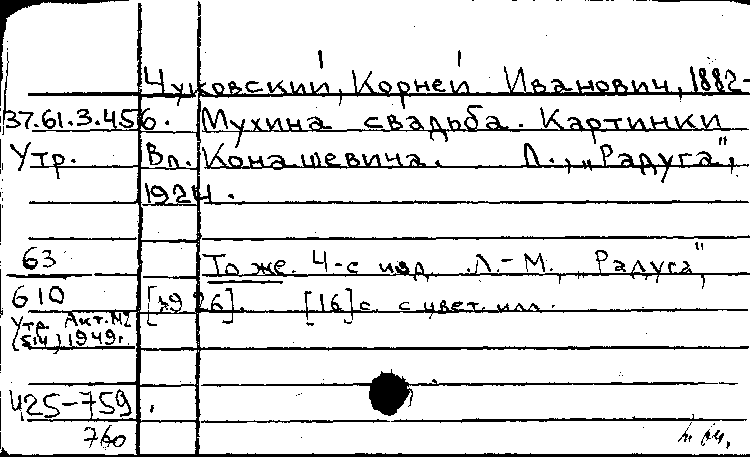 Чуковский, Корней Иванович, 1882-
37.61.3.456. Мухина свадьба. Картинки
Утр. Вл. Конашевича. Л., „Радуга",
1924.
63 То же. 4-е изд. Л.-М., „Радуга",
610 [1926]. [16] с. с цвет. илл.
Утр. Акт. №2
(514) 1949г.
425-759.
760